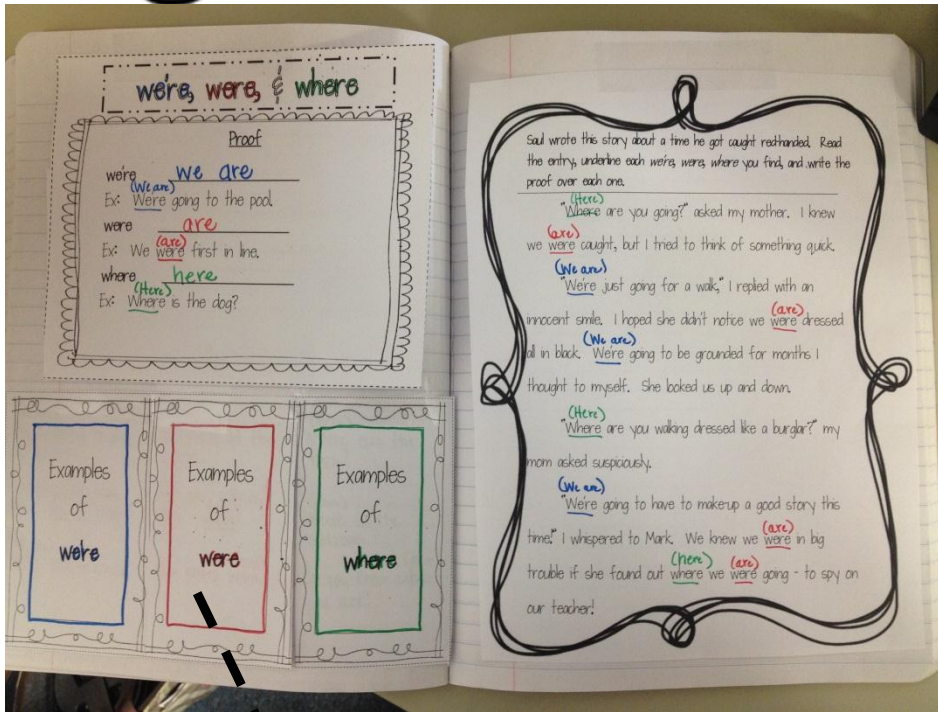 we're, were, & where
Proof
we're we are
(We are)
Ex: We're going to the pool.
were are
(are)
Ex: We were first in line.
where here
(Here)
Ex: Where is the dog?
Examples
of
we're
Examples
of
were
Examples
of
where
Saul wrote this story about a time he got caught redhanded. Read
the entry, underline each we're, were, where you find, and write the
proof over each one.
(Here)
"Where are you going?" asked my mother. I knew
(are)
we were caught, but I tried to think of something quick.
(We are)
"We're just going for a walk," I replied with an
(are)
innocent smile. I hoped she didn't notice we were dressed
(We are)
all in black. We're going to be grounded for months I
thought to myself. She looked us up and down.
(Here)
"Where are you walking dressed like a burglar?" my
mom asked suspiciously.
(We are)
"We're going to have to make-up a good story this
(are)
time!" I whispered to Mark. We knew we were in big
(here) (are)
trouble if she found out where we were going - to spy on
our teacher!